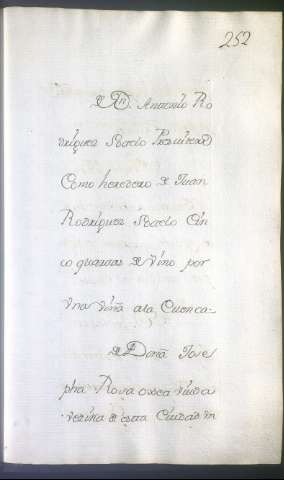 252
D. Antonio Ro
driguez Presvitero
Como heredero de Juan
Rodriguez Cin
co quartas de vino por
vna viña ala Cuenca-
Doña Jose
pha Rosa viuda
vezina de esta Ciudad vn